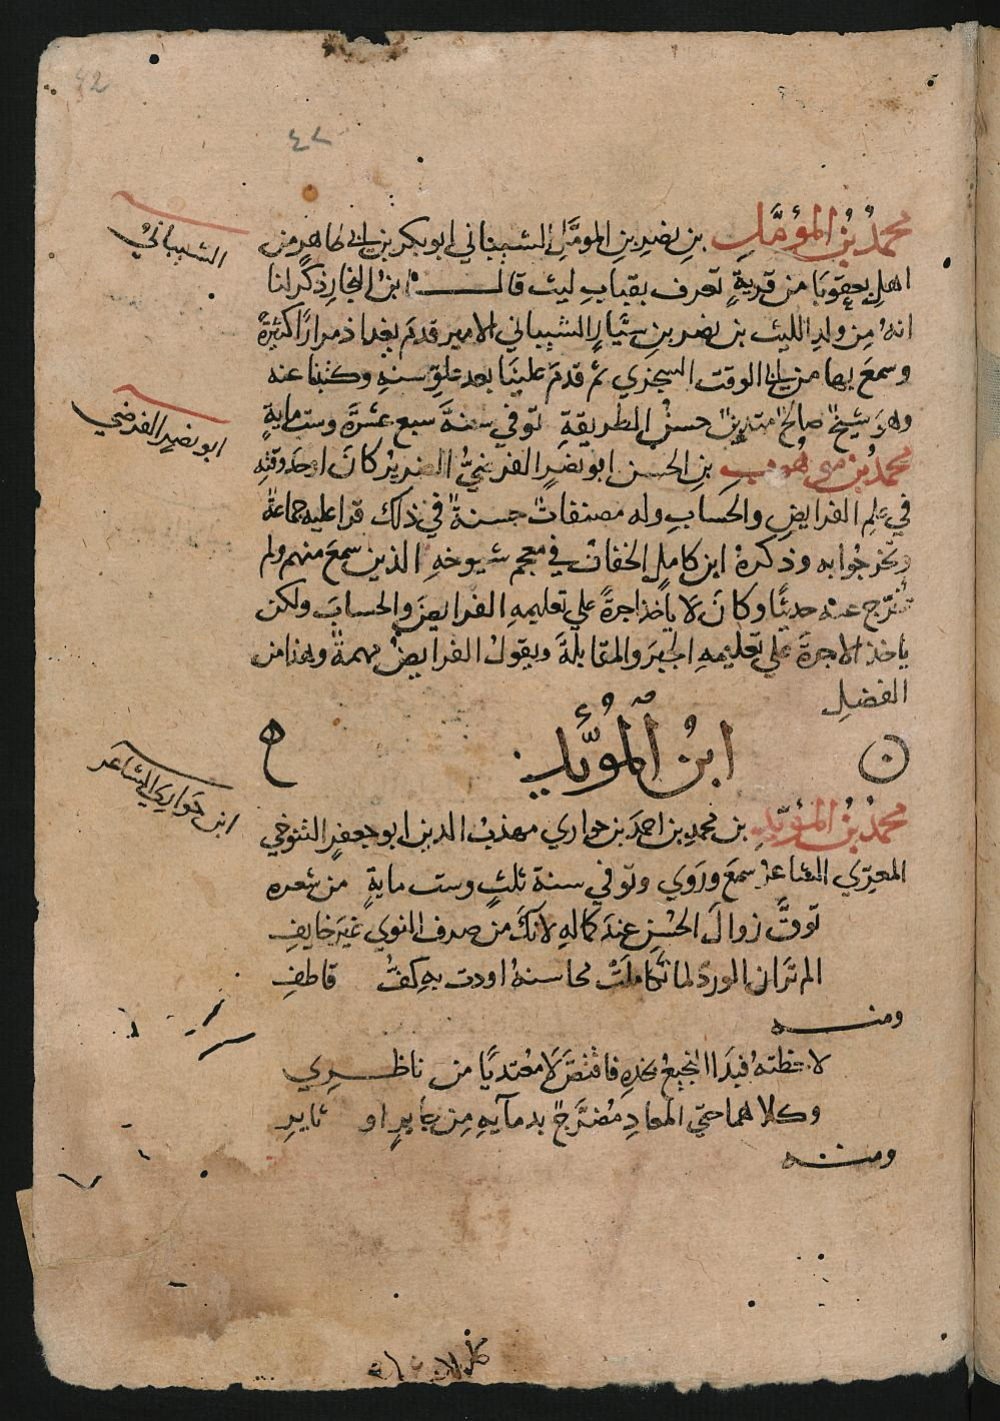 42
٤٢
محمدُ بنُ المؤمَّلِ بنِ نصرِ بنِ المومَّلِ الشيباني ابو بكر بن ابي طاهرٍ من
الشيبانيُّ
اهلِ بعقوبَا من قريةٍ تعرف بقبابِ ليث قالــــــ ابنُ النجارِ ذكر لنا
انهُ مِن ولدِ الليث بن نصر بنِ سَيَّارٍ الشيباني الامير قدمَ بغداذ مرارًا كثيرةً
وسمعَ بها من ابي الوقت السجزي ثم قدمَ علينَا بعد علوّ سنهِ وكتبنا عنه
وهوَ شيخٌ صالحٌ متدينٌ حسنُ الطريقةِ توفي سنةَ سبع عشرَةَ وست مايةٍ
ابو نصرٍ الفرضي
محمدُ بنُ موهوبِ بنِ الحسن ابو نصرٍ الفرضيُّ الضريرُ كانَ اوحدَ وقتِهِ
في علمِ الفرايضِ والحسابِ وله مصنفاتٌ حسنةٌ في ذلك قرا عليه جماعةٌ
وتخرجُوا به وذكرهُ ابن كاملٍ الخفافُ في معجم شيوخهِ الذين سمعَ منهم ولم
يخرّج عنه حديثًا وكانَ لا ياخذ اجرةً علي تعليمهِ الفرايضَ والحسابَ ولكن
ياخذ الاجرةَ علي تعليمهِ الجبرَ والمقابلةَ ويقولُ الفرايضُ مهمةٌ وهذا من
الفضلِ
ن ابنُ المُؤيَّدِ ح
ابن حَواري الشاعر
محمدُ بنُ المؤيّدِ بن محمدِ بن احمدَ بن حواري مهذبُ الدين ابو جعفرٍ التنوخي
المعرّي الشاعرُ سمعَ ورَوي وتوفي سنة ثلثٍ وست مايةٍ من شعره
توقَّ زوالَ الحُسْنِ عندَ كمالهِ لانكَ من صرف النوي غيرَ خايفِ
الم ترَ ان الوردَ لما تكاملَتْ محاسنهُ اودت بهِ كفُّ قاطفِ
ومنــــــه
لاحظتهُ فبدَا النجيعُ بخدهِ فاقتصَّ لا مُعْتديًا من ناظــــرِي
وكلاهما حتي المعادِ مُضرَّجٌ بدمآيهِ مِن جايرٍ او ثايرِ
ومنــــــه